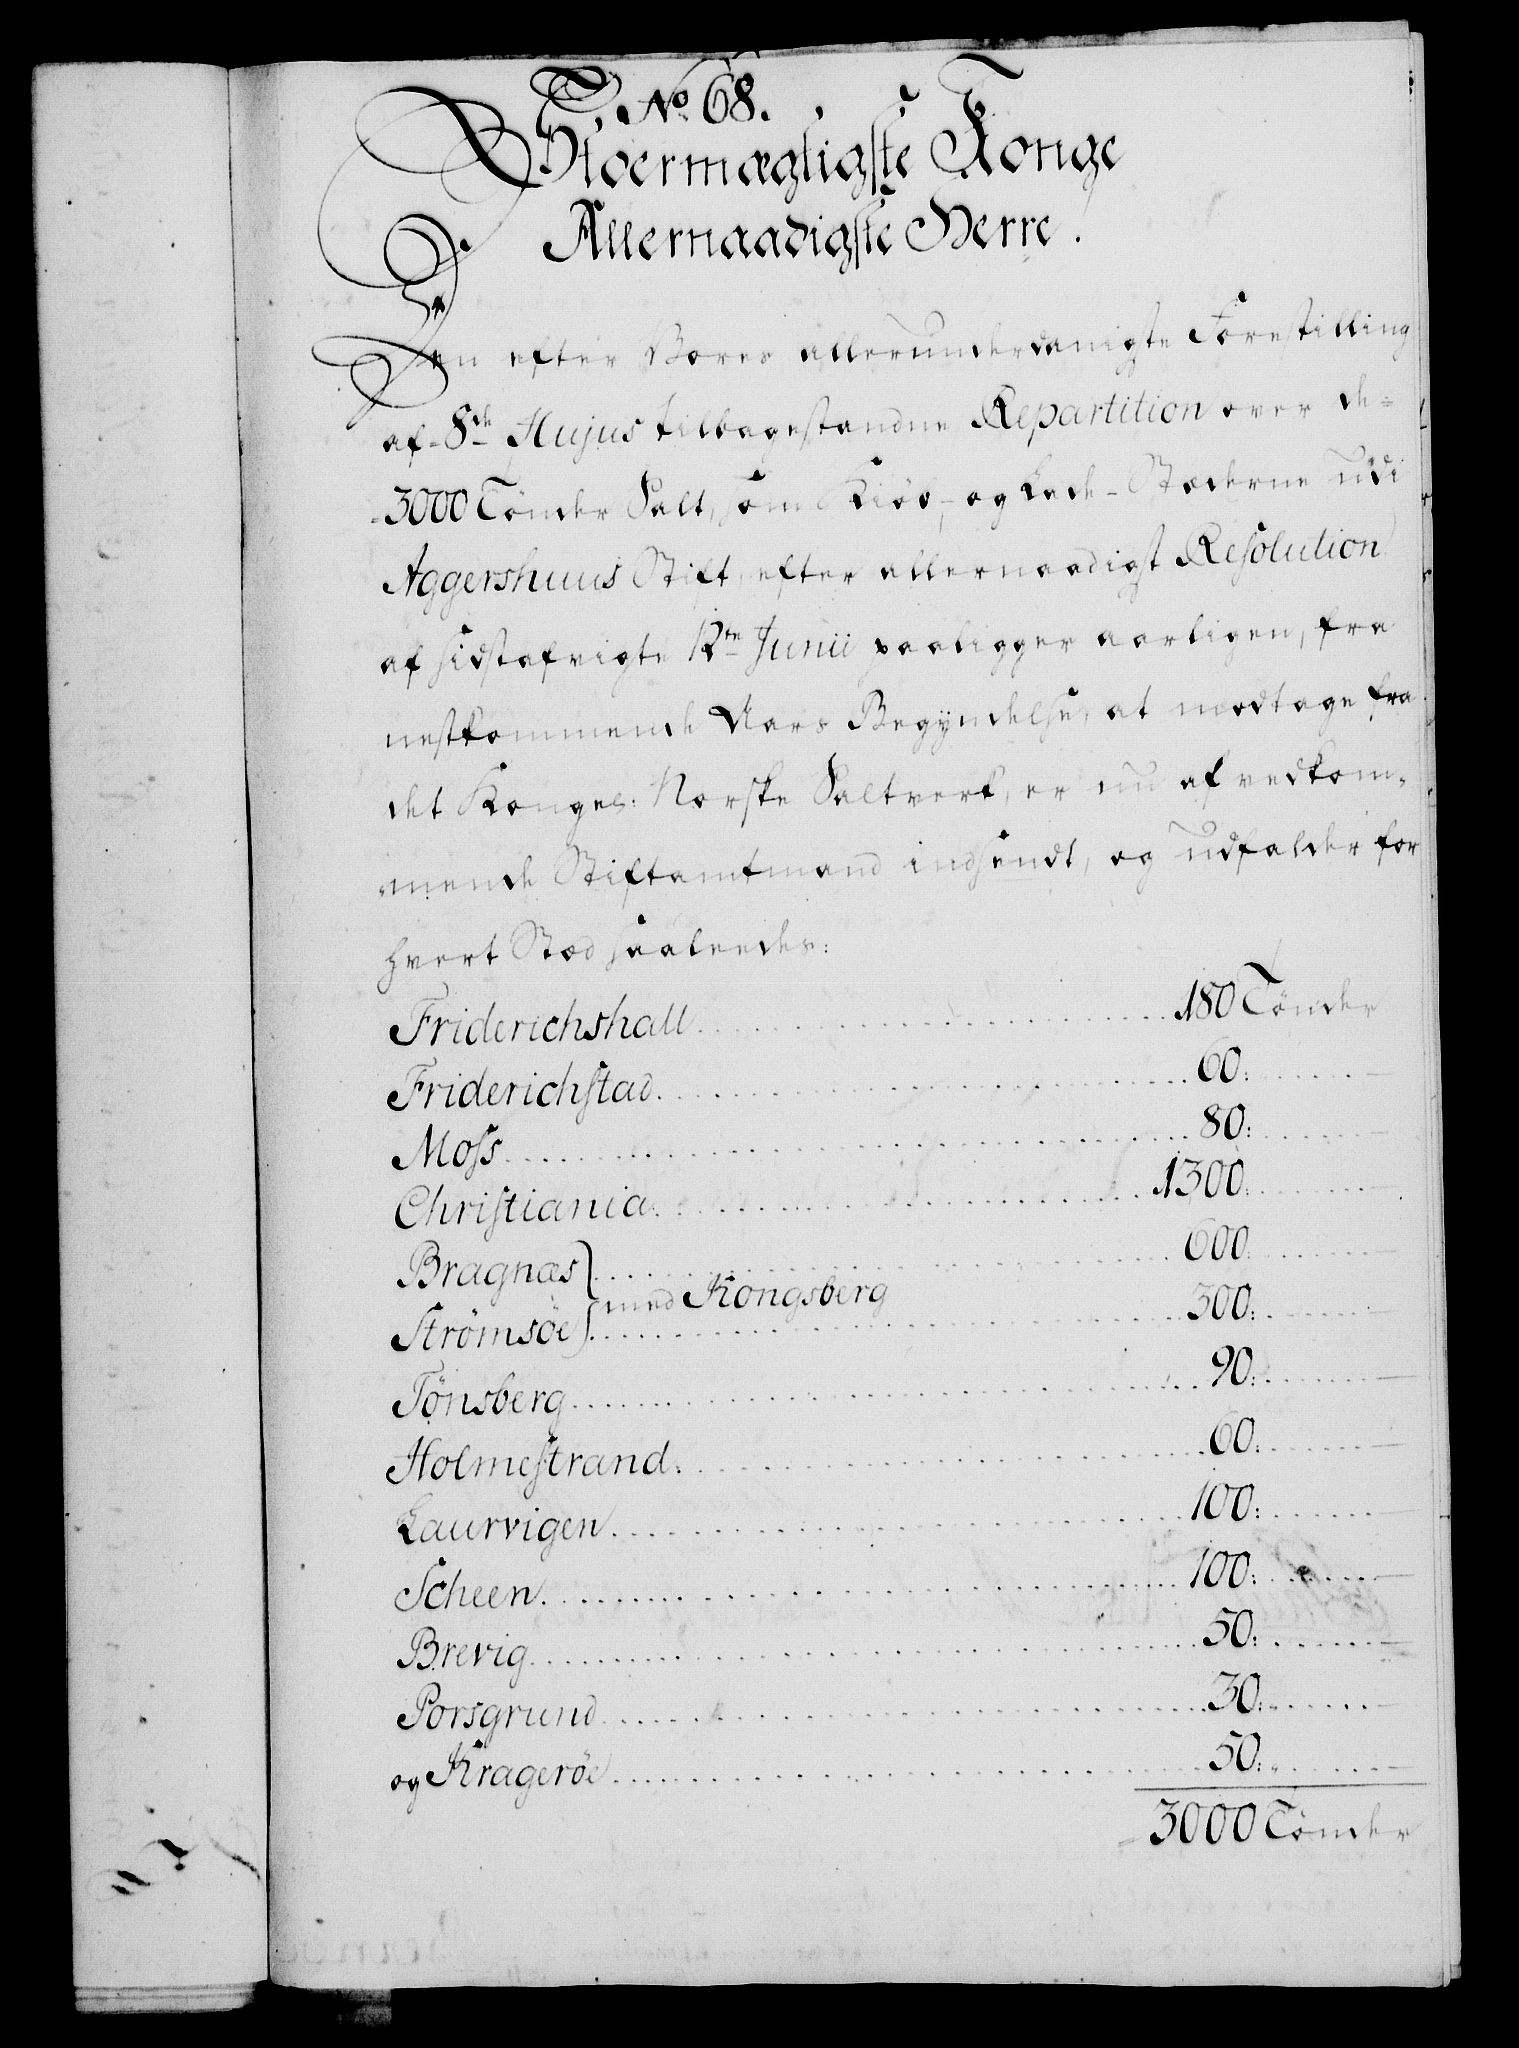 No 68.
Stoermægtigste Konge
Allernaadigste Herre.
Den efter Vores allerunderdanigste Forestilling
af 8de Hujus tilbagestandne Repartition over de
3000 Tönder Salt, som Kiöb- og Lade-Stæderne udi
Aggershuus Stift, efter allernaadigst Resolution
af sidstafvigte 12te Junii paaligger aarligen, fra
nestkommende Aars Begyndelse, at modtage fra
det Kongel: Norske Saltverk, er nu af vedkom-
mende Stiftamtmand indsendt, og udfalder for
hvert Stæd saaledes:
Friderichshall 180 Tönder
Friderichstad 60:
Moss 80:
Christiania 1300:
Bragnæs 600:
med Kongsberg
Strömsöe 300:
Tönsberg 90:
Holmestrand 60:
Laurvigen 100:
Scheen 100:
Brevig 50:
Porsgrund 30:
og Krageröe 50:
3000 Tönder